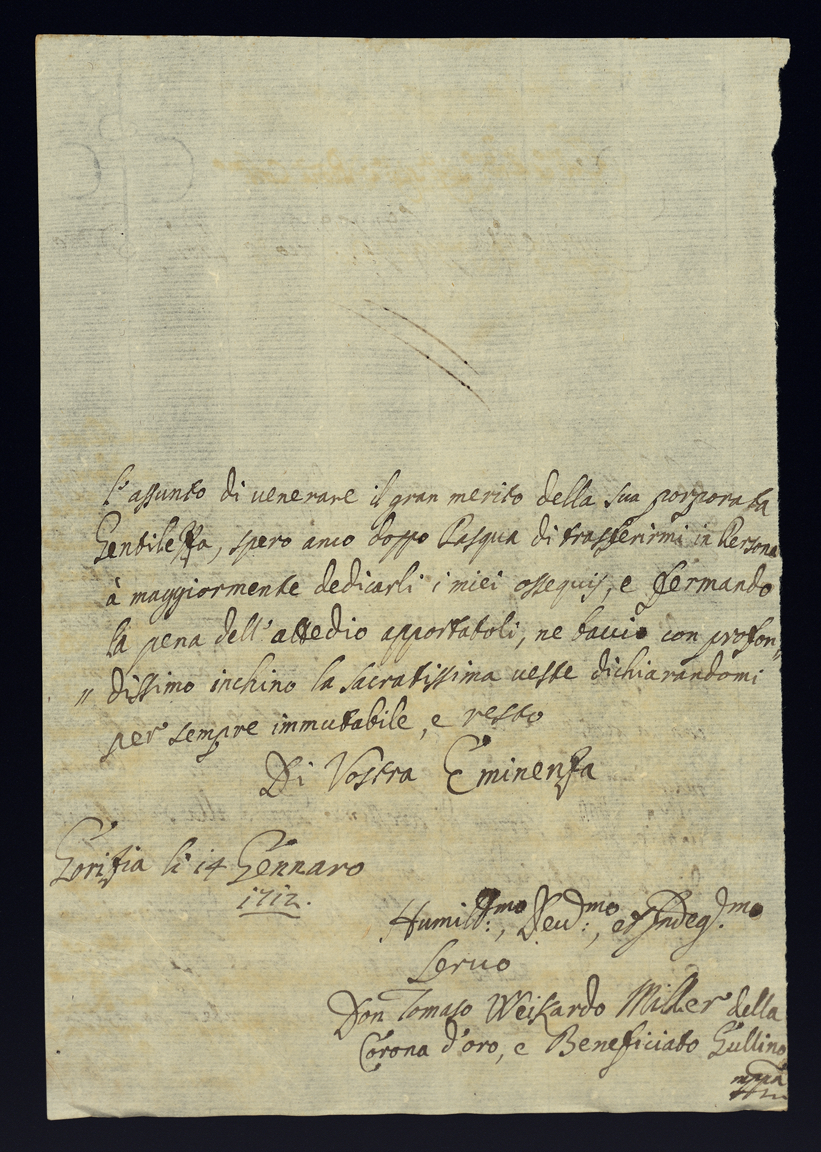 l'assunto di venerare il gran merito della sua porporata
Gentilezza, spero anco doppo Pasqua di trasferirmi in Persona
à maggiormente dedicarli i miei ossequij, e fermando
la pena dell'attedio apportatoli, ne baccio con profon„
„dissimo inchino la sacratissima veste dichiarandomi
per sempre immutabile, e resto
Di Vostra Eminenza
Gorizia li 14 Gennaro
1712.
Humill:mo, Deu:mo, et Indeg.mo
Seruo
Don Tomaso Weikardo Miller della
Corona d'oro, e Beneficiato Gullino
mppa